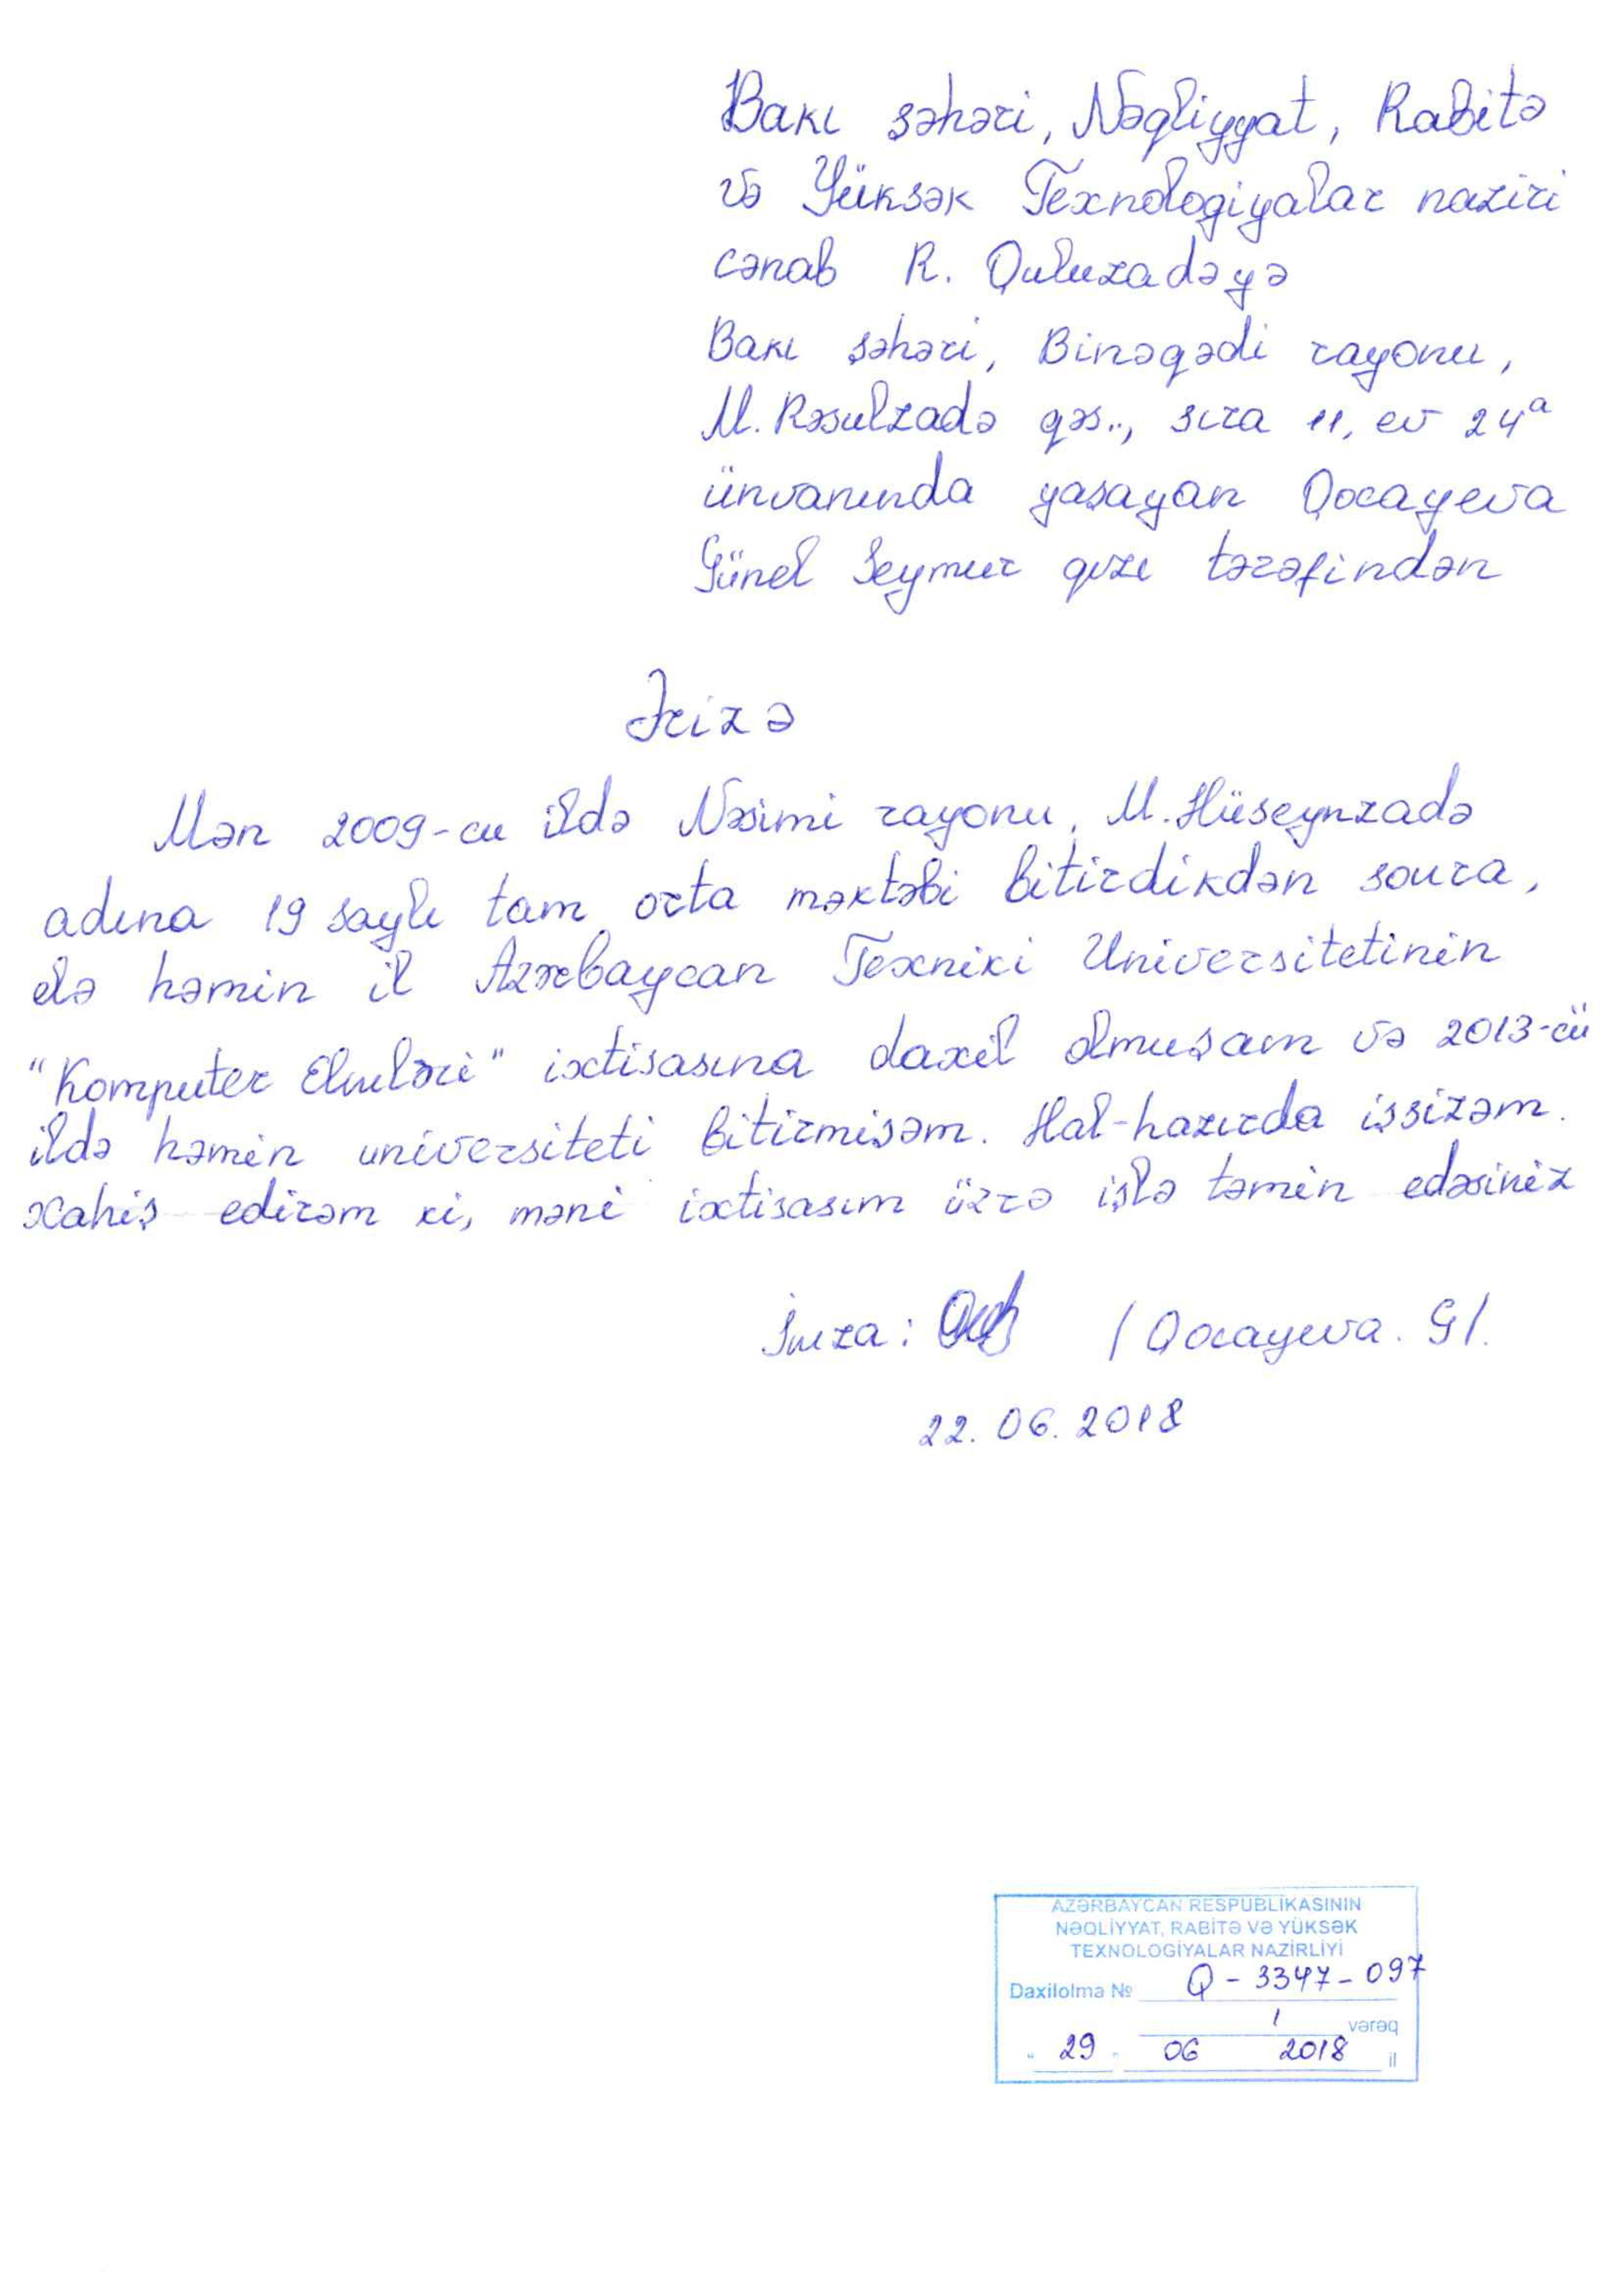 Bakı şəhəri, Nəqliyyat, Rabitə
və Yüksək Texnologiyalar naziri
cənab R. Quluzadəyə
Bakı şəhəri, Binəqədi rayonu,
M. Rəsulzadə qəs., sıra 11, ev 24a
ünvanında yaşayan Qocayeva
Günel Seymur qızı tərəfindən
Ərizə
Mən 2009-cu ildə Nəsimi rayonu, M. Hüseynzadə
adına 19 saylı tam orta məktəbi bitirdikdən sonra,
elə həmin il Azərbaycan Texniki Universitetinin
"Komputer Elmləri" ixtisasına daxil olmuşam və 2013-cü
ildə həmin universiteti bitirmişəm. Hal-hazırda işsizəm.
Xahiş edirəm ki, məni ixtisasım üzrə işlə təmin edəsiniz
İmza: / Qocayeva. G/.
22.06.2018
AZƏRBAYCAN RESPUBLİKASININ
NƏQLİYYAT, RABİTƏ VƏ YÜKSƏK
TEXNOLOGİYALAR NAZİRLİYİ
Daxilolma № Q-3347-097
1 vərəq
" 29 " 06 2018 il